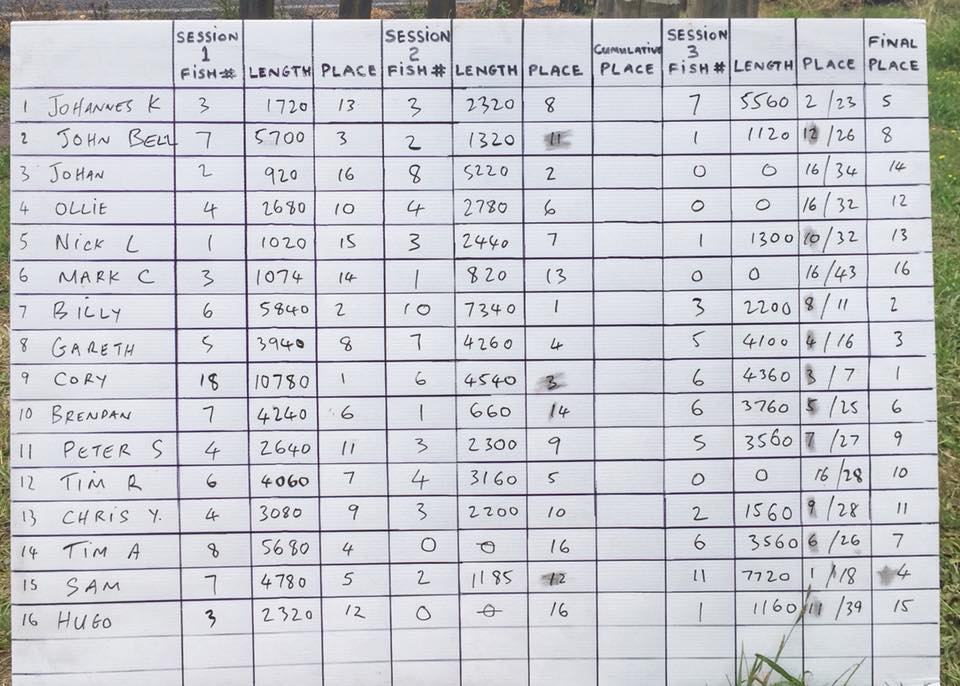 SESSION 1 FISH# LENGTH PLACE SESSION 2 FISH# LENGTH PLACE CUMULATIVE PLACE SESSION 3 FISH# LENGTH PLACE FINAL PLACE
1 JOHANNES K 3 1720 13 3 2320 8 7 5560 2/23 5
2 JOHN BELL 7 5700 3 2 1320 11 1 1120 12/26 8
3 JOHAN 2 920 16 8 5220 2 0 0 16/34 14
4 OLLIE 4 2680 10 4 2780 6 0 0 16/32 12
5 NICK L 1 1020 15 3 2440 7 1 1300 10/32 13
6 MARK C 3 1074 14 1 820 13 0 0 16/43 16
7 BILLY 6 5840 2 10 7340 1 3 2200 8/11 2
8 GARETH 5 3940 8 7 4260 4 5 4100 4/16 3
9 CORY 18 10780 1 6 4540 3 6 4360 3/7 1
10 BRENDAN 7 4240 6 1 660 14 6 3760 5/25 6
11 PETER S 4 2640 11 3 2300 9 5 3560 7/27 9
12 TIM R 6 4060 7 4 3160 5 0 0 16/28 10
13 CHRIS Y. 4 3080 9 3 2200 10 2 1560 9/28 11
14 TIM A 8 5680 4 0 0 16 6 3560 6/26 7
15 SAM 7 4780 5 2 1185 12 11 7720 1/18 4
16 HUGO 3 2320 12 0 0 16 1 1160 11/39 15